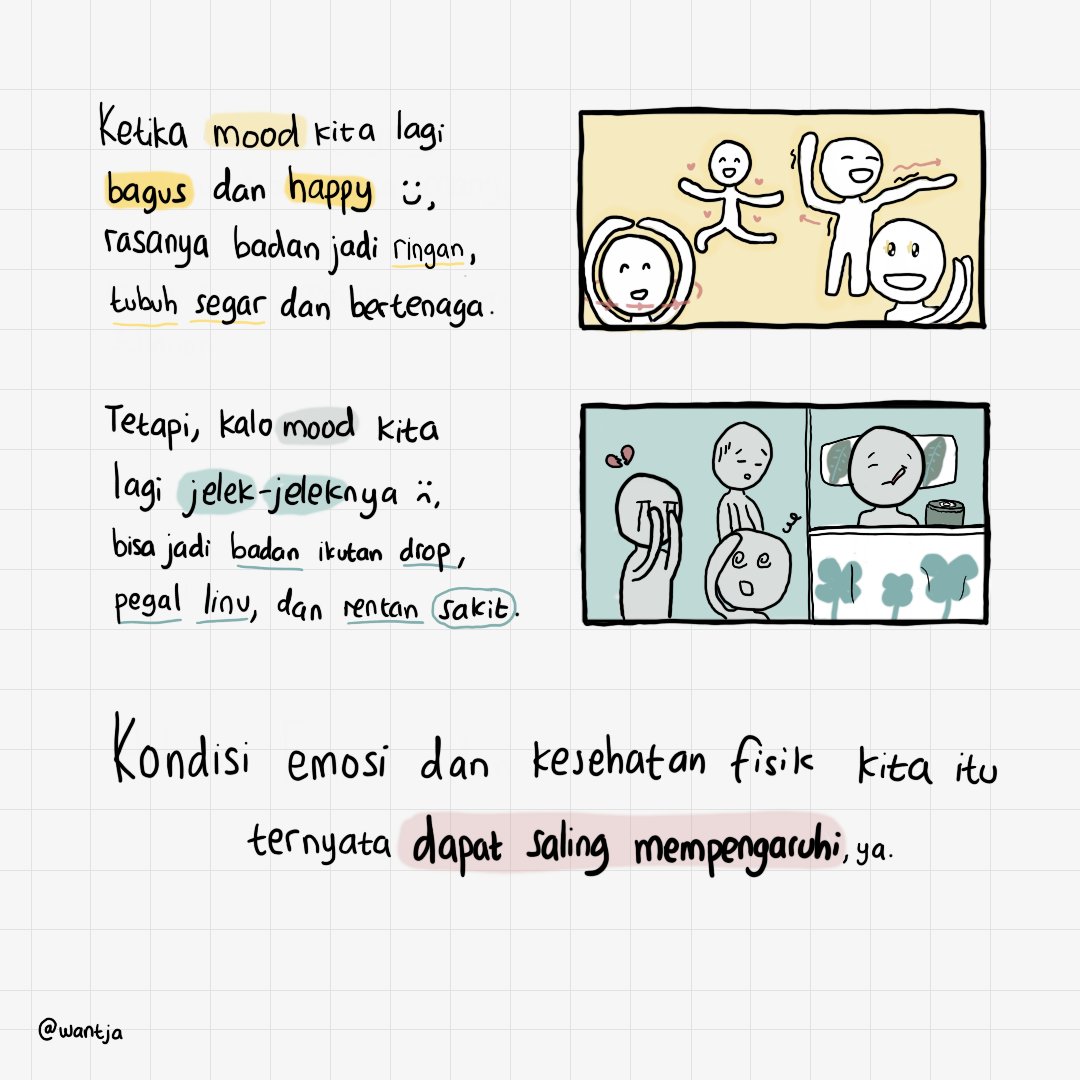 Ketika mood kita lagi
bagus dan happy :),
rasanya badan jadi ringan,
tubuh segar dan bertenaga.
Tetapi, kalo mood kita
lagi jelek-jeleknya :(,
bisa jadi badan ikutan drop,
pegal linu, dan rentan sakit.
Kondisi emosi dan kesehatan fisik kita itu
ternyata dapat saling mempengaruhi, ya.
@wantja